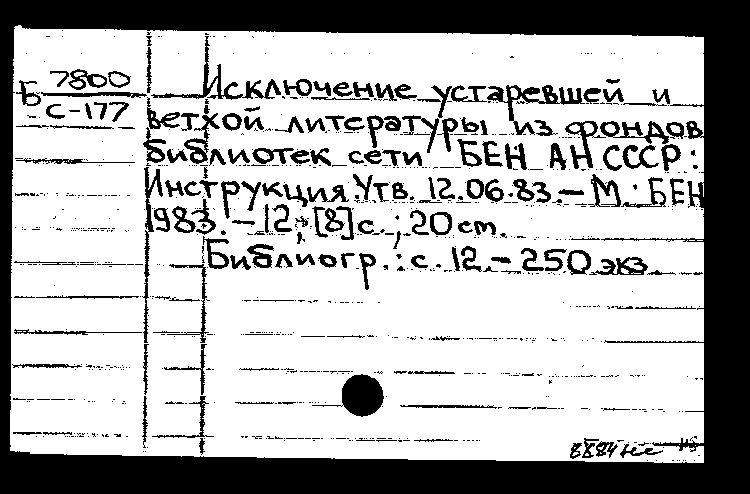 Б 7800
С-177
Исключение устаревшей и
ветхой литературы из фондов
библиотек сети БЕН АН СССР:
Инструкция. Утв. 12.06.83.— М.: БЕН
1983.—12, [8] с.; 20 см.
Библиогр.: с. 12.— 250 экз.